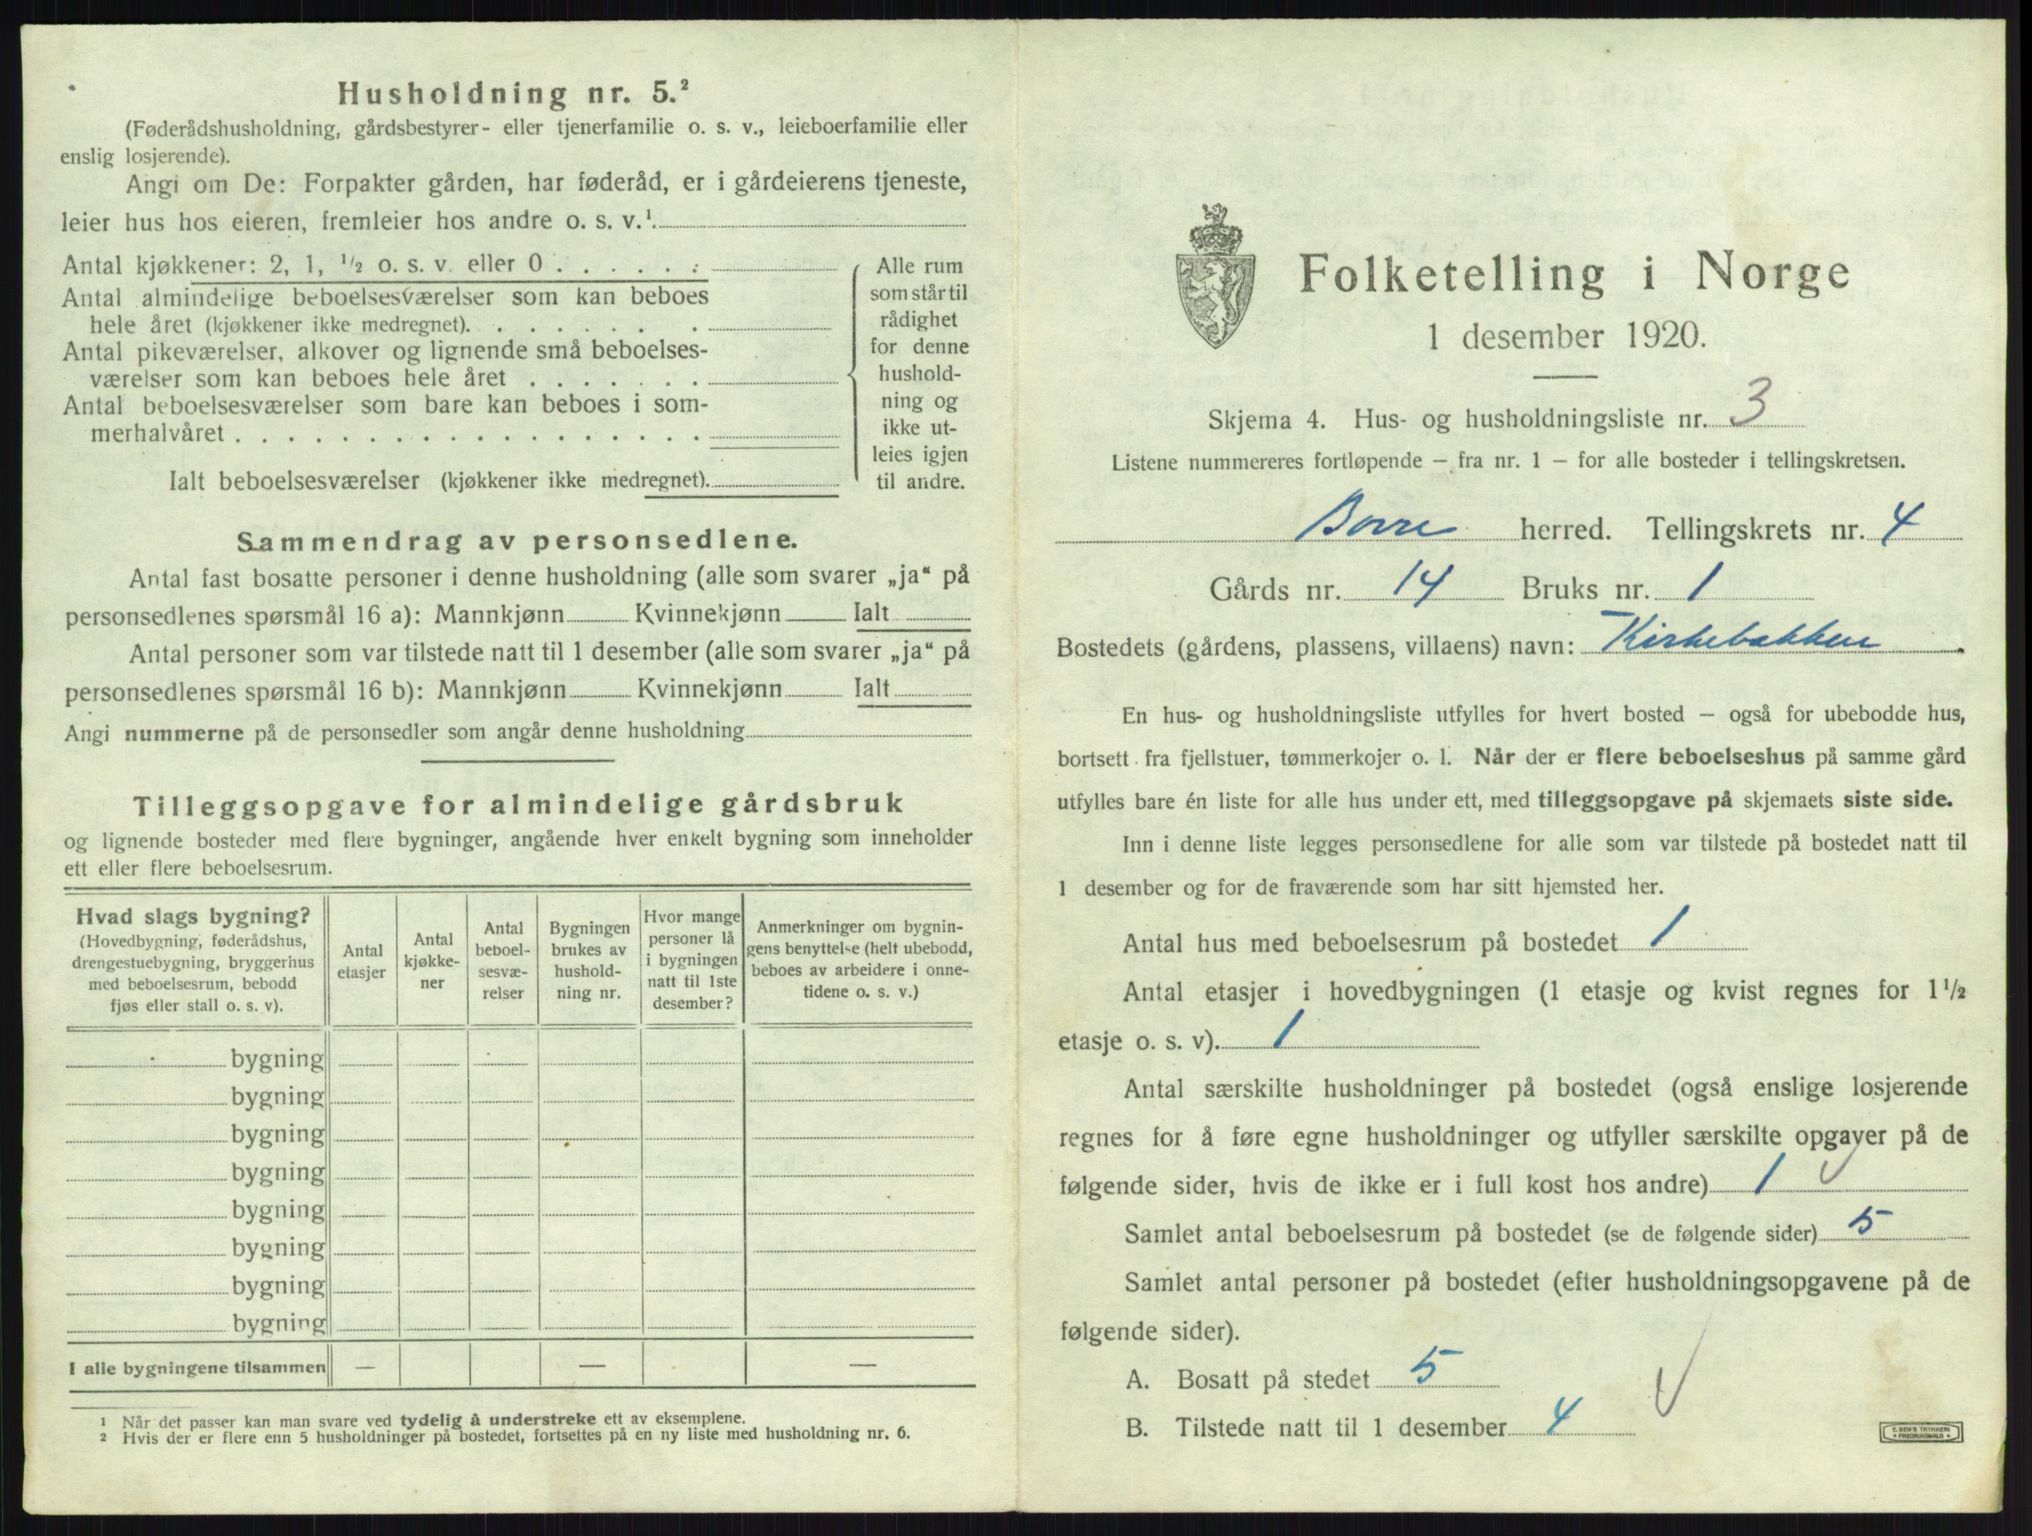 Husholdning nr. 5.²
(Føderådshusholdning, gårdsbestyrer- eller tjenerfamilie o. s. v., leieboerfamilie eller
enslig losjerende).
Angi om De: Forpakter gården, har føderåd, er i gårdeierens tjeneste,
leier hus hos eieren, fremleier hos andre o. s. v.¹
Antal kjøkkener: 2, 1, ½ o. s. v. eller 0 . . . . . .
Antal almindelige beboelsesværelser som kan beboes
hele året (kjøkkener ikke medregnet). . . . . . . . .
Antal pikeværelser, alkover og lignende små beboelses-
værelser som kan beboes hele året . . . . . . .
Antal beboelsesværelser som bare kan beboes i som-
merhalvåret . . . . . . . . . . . . . . . . . .
Ialt beboelsesværelser (kjøkkener ikke medregnet).
Alle rum
som står til
rådighet
for denne
hushold-
ning og
ikke ut-
leies igjen
til andre.
Sammendrag av personsedlene.
Antal fast bosatte personer i denne husholdning (alle som svarer „ja“ på
personsedlenes spørsmål 16 a): Mannkjønn Kvinnekjønn Ialt
Antal personer som var tilstede natt til 1 desember (alle som svarer „ja“ på
personsedlenes spørsmål 16 b): Mannkjønn Kvinnekjønn Ialt
Angi nummerne på de personsedler som angår denne husholdning
Tilleggsopgave for almindelige gårdsbruk
og lignende bosteder med flere bygninger, angående hver enkelt bygning som inneholder
ett eller flere beboelsesrum.
Hvad slags bygning?
(Hovedbygning, føderådshus,
drengestuebygning, bryggerhus
med beboelsesrum, bebodd
fjøs eller stall o. s. v).
Antal
etasjer
Antal
kjøkke-
ner
Antal
beboel-
sesvæ-
relser
Bygningen
brukes av
hushold-
ning nr.
Hvor mange
personer lå
i bygningen
natt til 1ste
desember?
Anmerkninger om bygnin-
gens benyttelse (helt ubebodd,
beboes av arbeidere i onne-
tidene o. s. v.)
bygning
bygning
bygning
bygning
bygning
bygning
bygning
bygning
I alle bygningene tilsammen — — —
1 Når det passer kan man svare ved tydelig å understreke ett av eksemplene.
2 Hvis der er flere enn 5 husholdninger på bostedet, fortsettes på en ny liste med husholdning nr. 6.
Folketelling i Norge
1 desember 1920.
Skjema 4. Hus- og husholdningsliste nr. 3
Listene nummereres fortløpende — fra nr. 1 — for alle bosteder i tellingskretsen.
Borre herred. Tellingskrets nr. 4
Gårds nr. 14 Bruks nr. 1
Bostedets (gårdens, plassens, villaens) navn: Kirkebakken
En hus- og husholdningsliste utfylles for hvert bosted — også for ubebodde hus,
bortsett fra fjellstuer, tømmerkojer o. l. Når der er flere beboelseshus på samme gård
utfylles bare én liste for alle hus under ett, med tilleggsopgave på skjemaets siste side.
Inn i denne liste legges personsedlene for alle som var tilstede på bostedet natt til
1 desember og for de fraværende som har sitt hjemsted her.
Antal hus med beboelsesrum på bostedet 1
Antal etasjer i hovedbygningen (1 etasje og kvist regnes for 1½
etasje o. s. v). 1
Antal særskilte husholdninger på bostedet (også enslige losjerende
regnes for å føre egne husholdninger og utfyller særskilte opgaver på de
følgende sider, hvis de ikke er i full kost hos andre) 1
Samlet antal beboelsesrum på bostedet (se de følgende sider) 5
Samlet antal personer på bostedet (efter husholdningsopgavene på de
følgende sider).
A. Bosatt på stedet 5
B. Tilstede natt til 1 desember 4
E. SEM'S TRYKKERI
FREDRIKSHALD